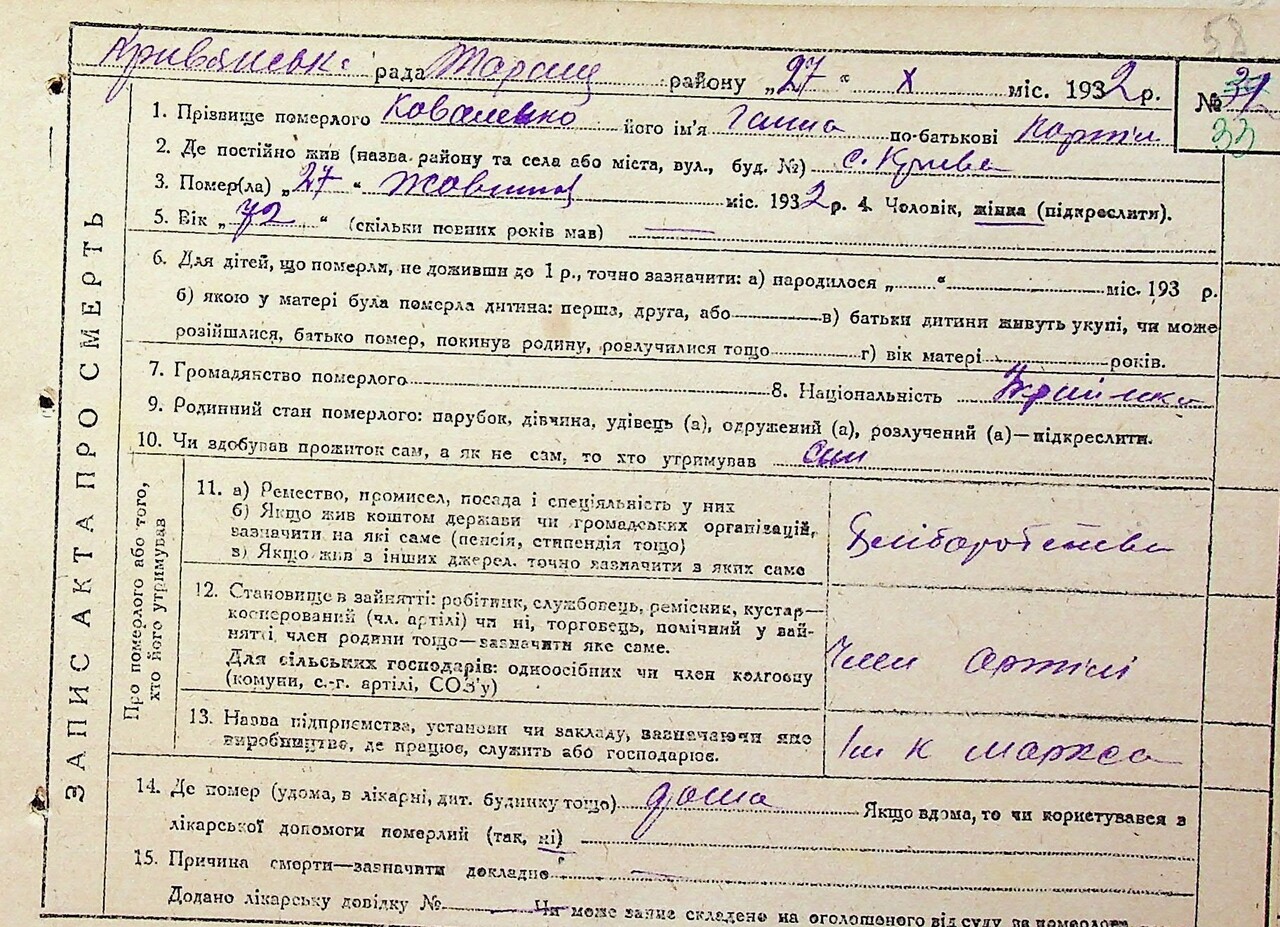 58
рада Таращ району „27 “ X міс. 1932 р.
№ 31
33
1. Прізвище померлого Коваленко його ім'я Ганна по-батькові
2. Де постійно жив (назва району та села або міста, вул., буд. №) с.
3. Помер(ла) „27 “ Жовтня міс. 1932 р. 4. Чоловік, жінка (підкреслити).
5. Вік „72 “ (скільки повних років мав) —
6. Для дітей, що померли, не доживши до 1 р., точно зазначити: а) народилося „ “ міс. 193 р.
б) якою у матері була померла дитина: перша, друга, або в) батьки дитини живуть укупі, чи може
розійшлися, батько помер, покинув родину, розлучилися тощо г) вік матері років.
7. Громадянство померлого 8. Національність Українка
9. Родинний стан померлого: парубок, дівчина, удівець (а), одружений (а), розлучений (а)—підкреслити.
10. Чи здобував прожиток сам, а як не сам, то хто утримував син
ЗАПИС АКТА ПРО СМЕРТЬ
Про померлого або того,
хто його утримував
11. а) Ремество, промисел, посада і спеціяльність у них
б) Якщо жив коштом держави чи громадських організацій,
зазначити на які саме (пенсія, стипендія тощо)
в) Якщо жив з інших джерел, точно зазначити з яких саме
Хліборобства
12. Становище в зайнятті: робітник, службовець, ремісник, кустар—
кооперований (чл. артілі) чи ні, торговець, помічний у зай-
нятті, член родини тощо—зазначити яке саме.
Для сільських господарів: одноосібник чи член колгоспу
(комуни, с.-г. артілі, СОЗ'у)
Член артілі
13. Назва підприємства, установи чи закладу, зазначаючи яке
виробництво, де працює, служить або господарює.
Ім К Маркса
14. Де помер (удома, в лікарні, дит. будинку тощо) дома Якщо вдома, то чи користувався з
лікарської допомоги померлий (так, ні)
15. Причина смерти—зазначити докладно —
Додано лікарську довідку № Чи може запис складено на оголошеного від суду за померлого